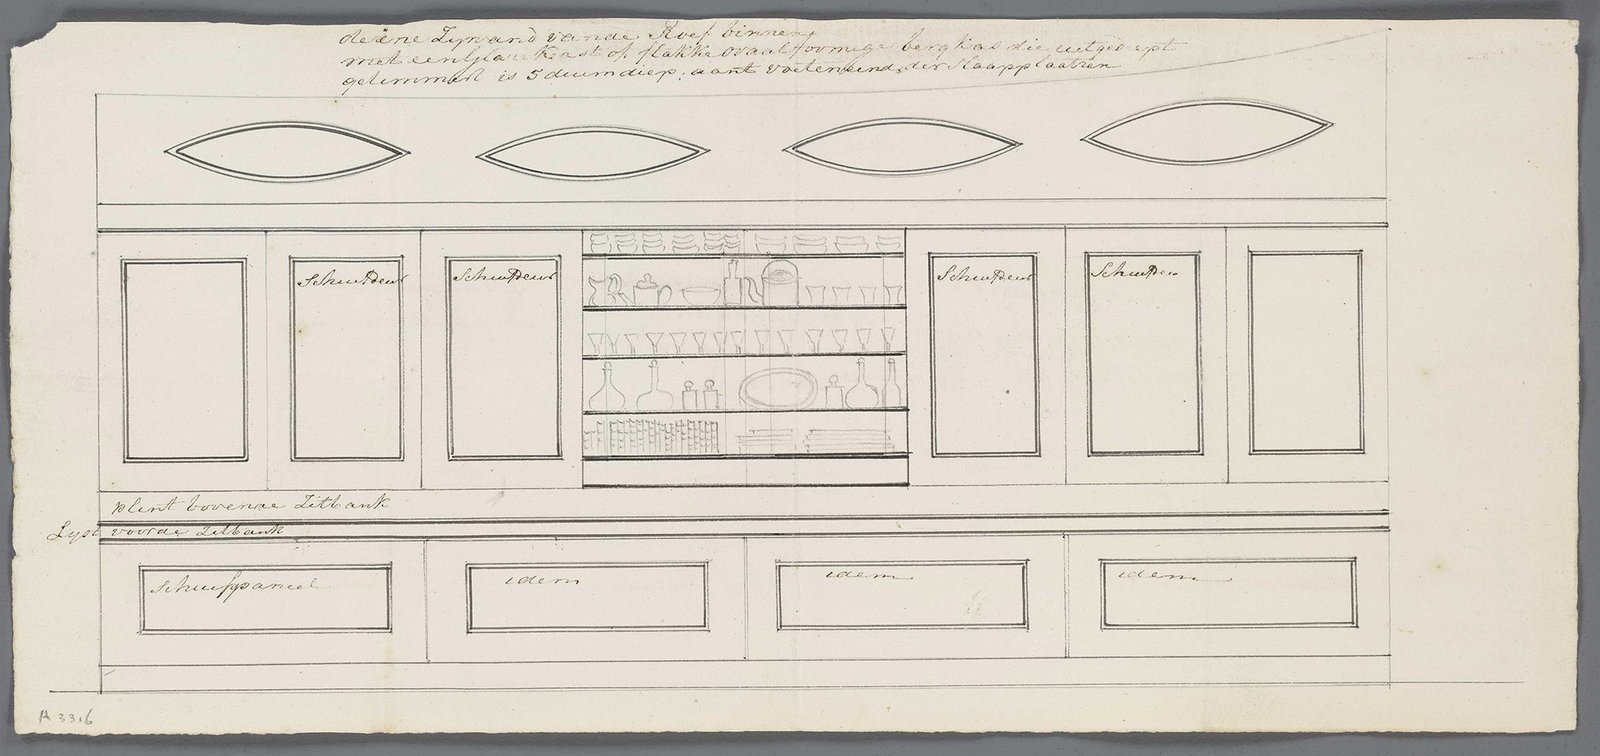 de ëne Zywand van de Roef binnen,
met een glase Kast of flakke ovaal formige berghas die uitged ept
getimmert is 5 duim diep, aant voeteneind der Slaapplaatzen
Schuifdeur
Schuifdeur
Schuifdeur
Schuifdeur
plint bovende Zitbank
Lyst voorde Zitbank
Schuifpaneel
idem
idem
idem
A 3316